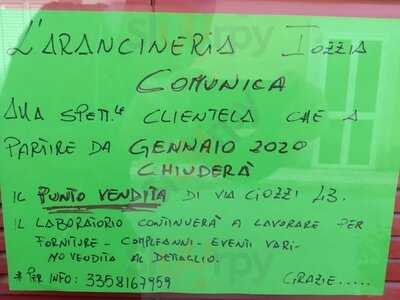 L'ARANCINERIA IOZZIA
COMUNICA
ALLA SPETT.LE CLIENTELA CHE A
PARTIRE DA GENNAIO 2020
CHIUDERÀ
IL PUNTO VENDITA DI VIA GOZZI 43.
IL LABORATORIO CONTINUERÀ A LAVORARE PER
FORNITURE - COMPLEANNI - EVENTI VARI -
NO VENDITA AL DETTAGLIO.
* PER INFO: 3358167959 GRAZIE.....